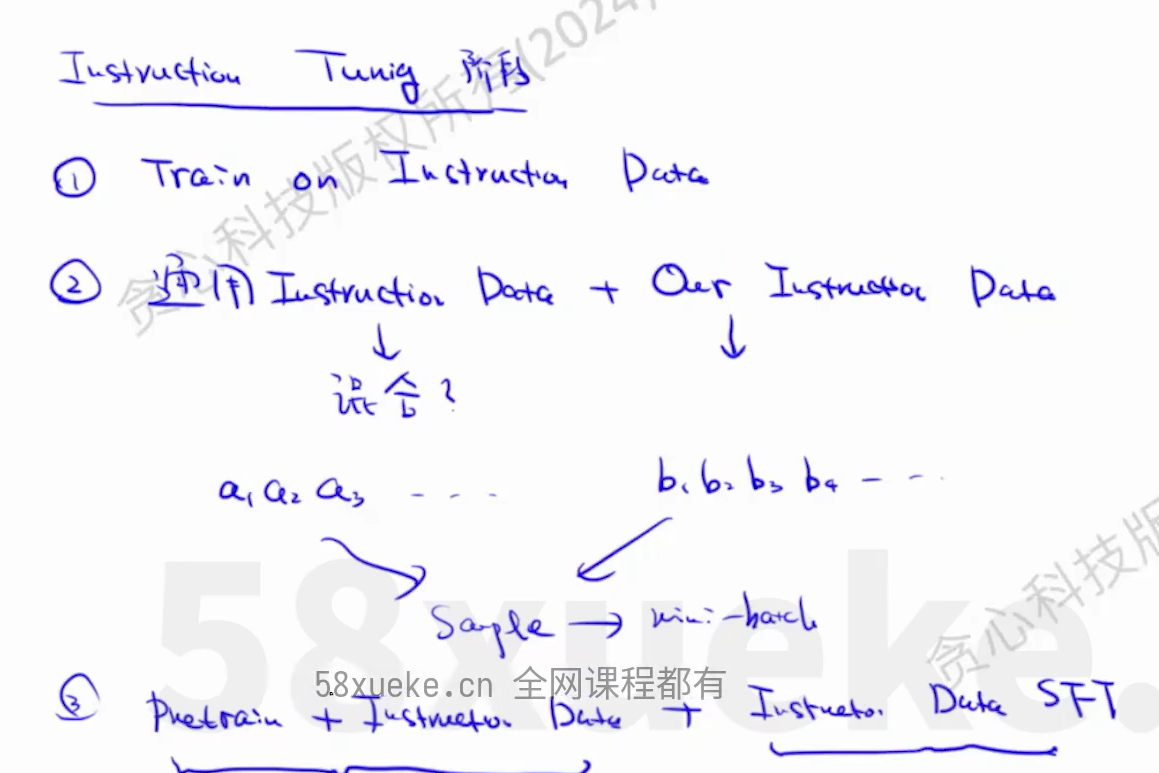 Instruction Tunig 阶段
① Train on Instruction Data
② 通用 Instruction Data + Our Instruction Data
混合?
a1 a2 a3 - - -
b1 b2 b3 b4 - - -
Sample → mini-batch
58xueke.cn 全网课程都有
③ Pretrain + Instruction Data + Instruction Data SFT
贪心科技版权所有(2024)
贪心科技版
58xueke.